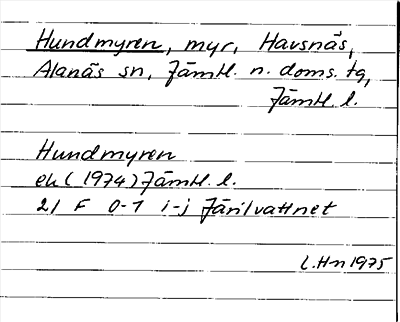 Hundmyren, myr, Havsnäs,
Alanäs sn, Jämtl. n. doms. tg,
Jämtl. l.
Hundmyren
ek (1974) Jämtl. l.
21 F 0-1 i-j Järilvattnet
L.H-n 1975